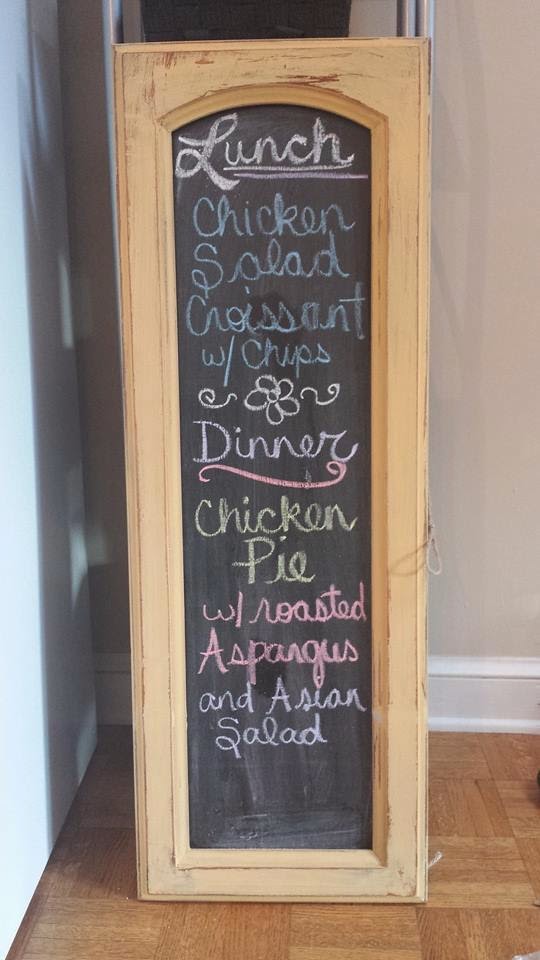 Lunch
Chicken
Salad
Croissant
w/ Chips
Dinner
Chicken
Pie
w/ roasted
Aspargus
and Asian
Salad